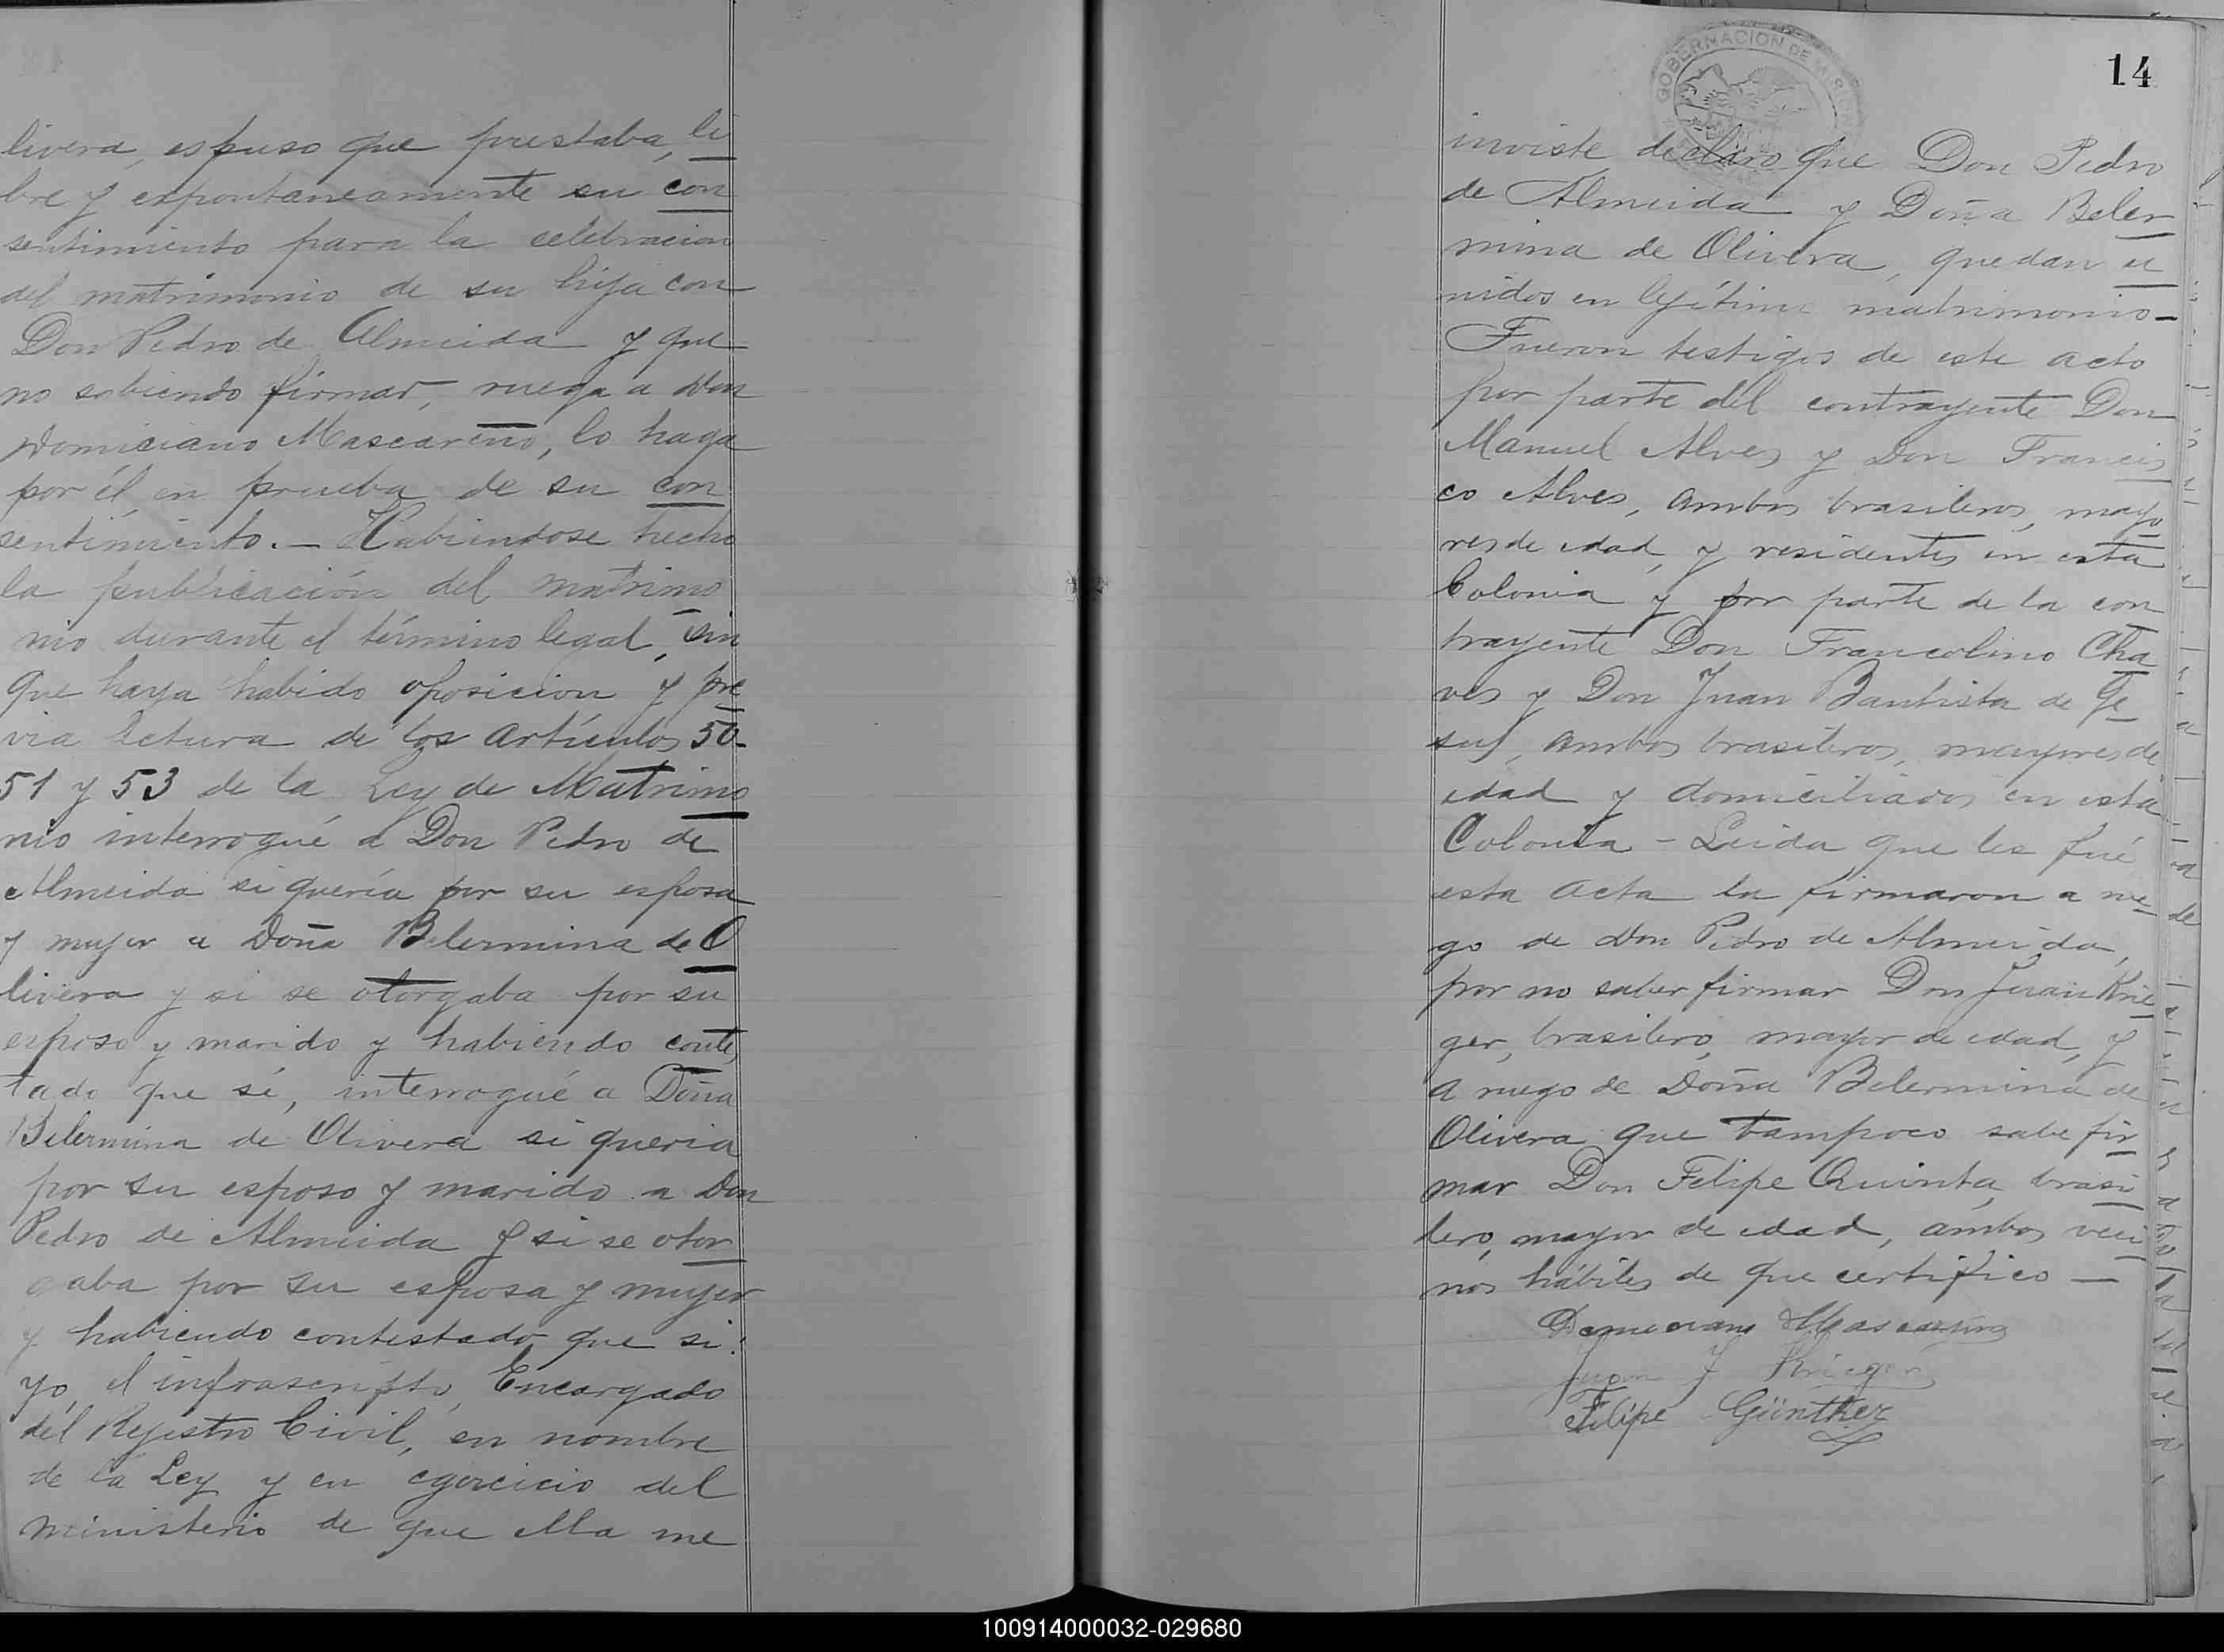 livera, espuso que prestaba, li
bre y espontaneamente su con
sentimiento para la celebracion
del matrimonio de su hija con
Don Pedro de Almeida y que
no sabiendo firmar, ruega a Don
Domiciano Mascareño, lo haga
por él, en prueba de su con
sentimiento. — Habiendose hecho
la publicación del matrimo
nio durante el término legal, sin
que haya habido oposicion y pre
via lectura de los artículos 50-
51 y 53 de la Ley de Matrimo
nio interrogué a Don Pedro de
Almeida si quería por su esposa
y mujer a Doña Belermina de O
livera y si se otorgaba por su
esposo y marido y habiendo contes
tado que sí, interrogué a Doña
Belermina de Olivera si queria
por su esposo y marido a Don
Pedro de Almeida y si se otor
gaba por su esposa y mujer
y habiendo contestado que si:
yo, el infrascripto, Encargado
del Rejistro Civil, en nombre
de la Ley y en egercicio del
ministerio de que ella me
GOBERNACION DE MISIONES
14
inviste declaro que Don Pedro
de Almeida y Doña Beler
mina de Olivera, quedan u
nidos en lejítimo matrimonio-
Fueron testigos de este acto
por parte del contrayente Don
Manuel Alves y Don Francis
co Alves, ambos brasileros, mayo
res de edad, y residentes en esta
Colonia y por parte de la con
trayente Don Francolino Cha
ves y Don Juan Bautista de Je
sus, ambos brasileros, mayores de
edad y domiciliados en esta
Colonia - Leida que les fué
esta acta la firmaron a rue
go de Don Pedro de Almeida,
por no saber firmar Don Juan Krie
ger, brasilero, mayor de edad, y
a ruego de Doña Belermina de
Olivera que tampoco sabe fir
mar Don Felipe Quinta, brasi
lero, mayor de edad, ambos veci
nos hábiles de que certifico —
Domiciano Mascareño
Juan J Krieger
Filipe Günther
100914000032-029680